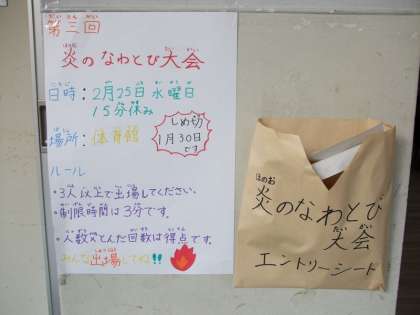 第三回
炎のなわとび大会
日時：2月25日水曜日
15分休み
場所：体育館
しめ切
1月30日
です
ルール
・3人以上で出場してください。
・制限時間は3分です。
・人数×とんだ回数は得点です。
みんな出場してね!!
ほのお
炎のなわとび
大会
エントリーシート